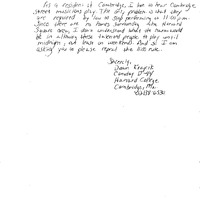 As a resident of Cambridge, I love to hear Cambridge
street musicians play. The only problem is that they
are required by law to stop performing at 11:00 pm.
Since there are no homes surrounding the Harvard
Square area, I don't understand what the harm would
be in allowing these talented people to play until
midnight, at least on weekends. And so I am
asking you to please repeal this silly rule.
Sincerely,
Harvard College
Cambridge, Ma